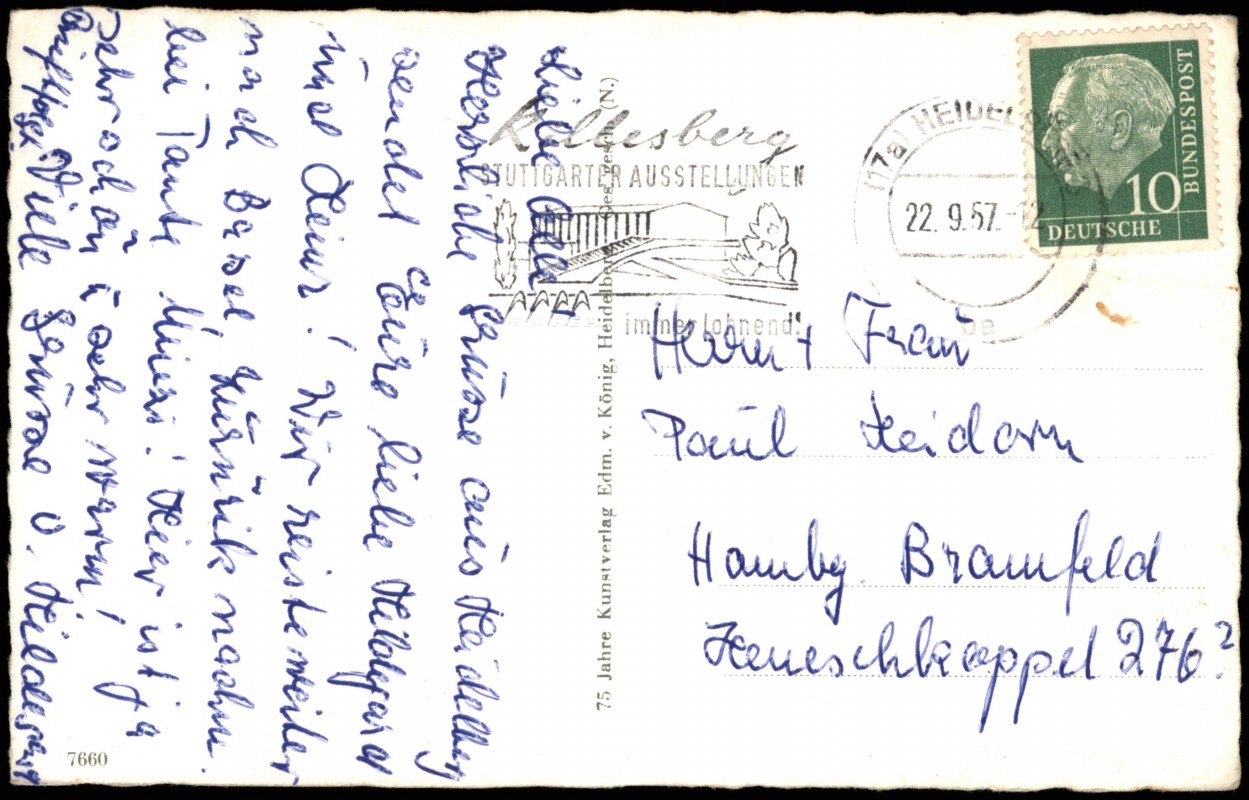 Liebe Alle!
Herzliche Grüsse aus Heidelberg
sendet Eure liebe Hildegard
und Heinr! Wir reisten weiter
nach Basel zurück nachm.
bei Tante Mieze! Hier ist ja
sehr schön u sehr warm!
Viele Grüsse v. Hildegard
Killesberg
STUTTGARTER AUSSTELLUNGEN
immer lohnend!
(17a) HEIDELBERG
22. 9. 57. -12
DEUTSCHE
BUNDESPOST
10
Herrn + Frau
Paul Heidorn
Hambg. Bramfeld
Heueschkoppel 276?
75 Jahre Kunstverlag Edm. v. König, Heidelberg Des. gesch. (N.)
7660